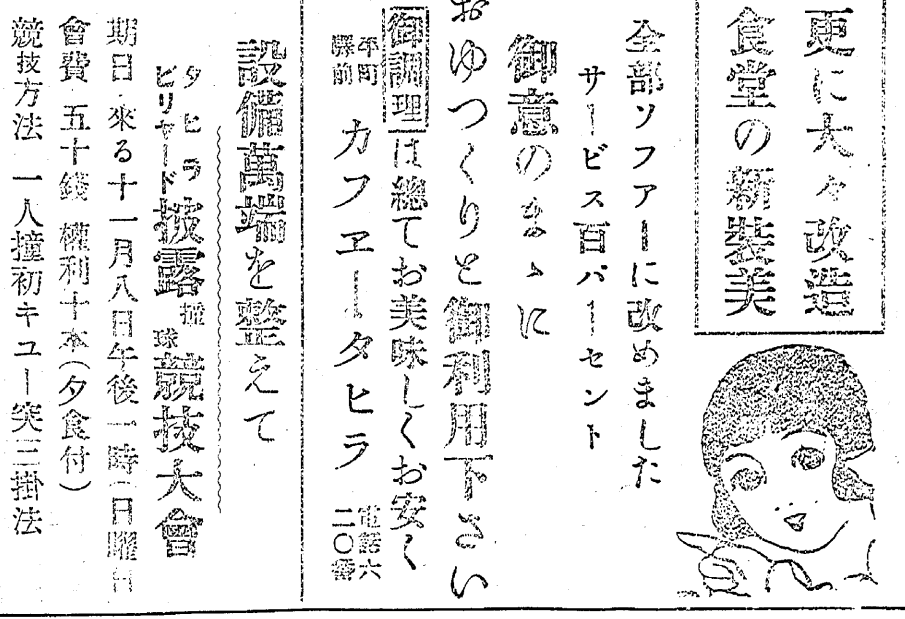 更に大々改造
食堂の新裝美
全部ソフアーに改めました
サービス百パーセント
御意のまゝに
おゆつくりと御利用下さい
御調理は總てお美味しくお安く
平町驛前 カフヱータヒラ 電話六二〇番
設備萬端を整えて
タヒラビリヤード披露撞球競技大會
期日・來る十一月八日午後一時(日曜日
會費・五十錢 權利十本(夕食付)
競技方法 一人撞初キユー突三掛法